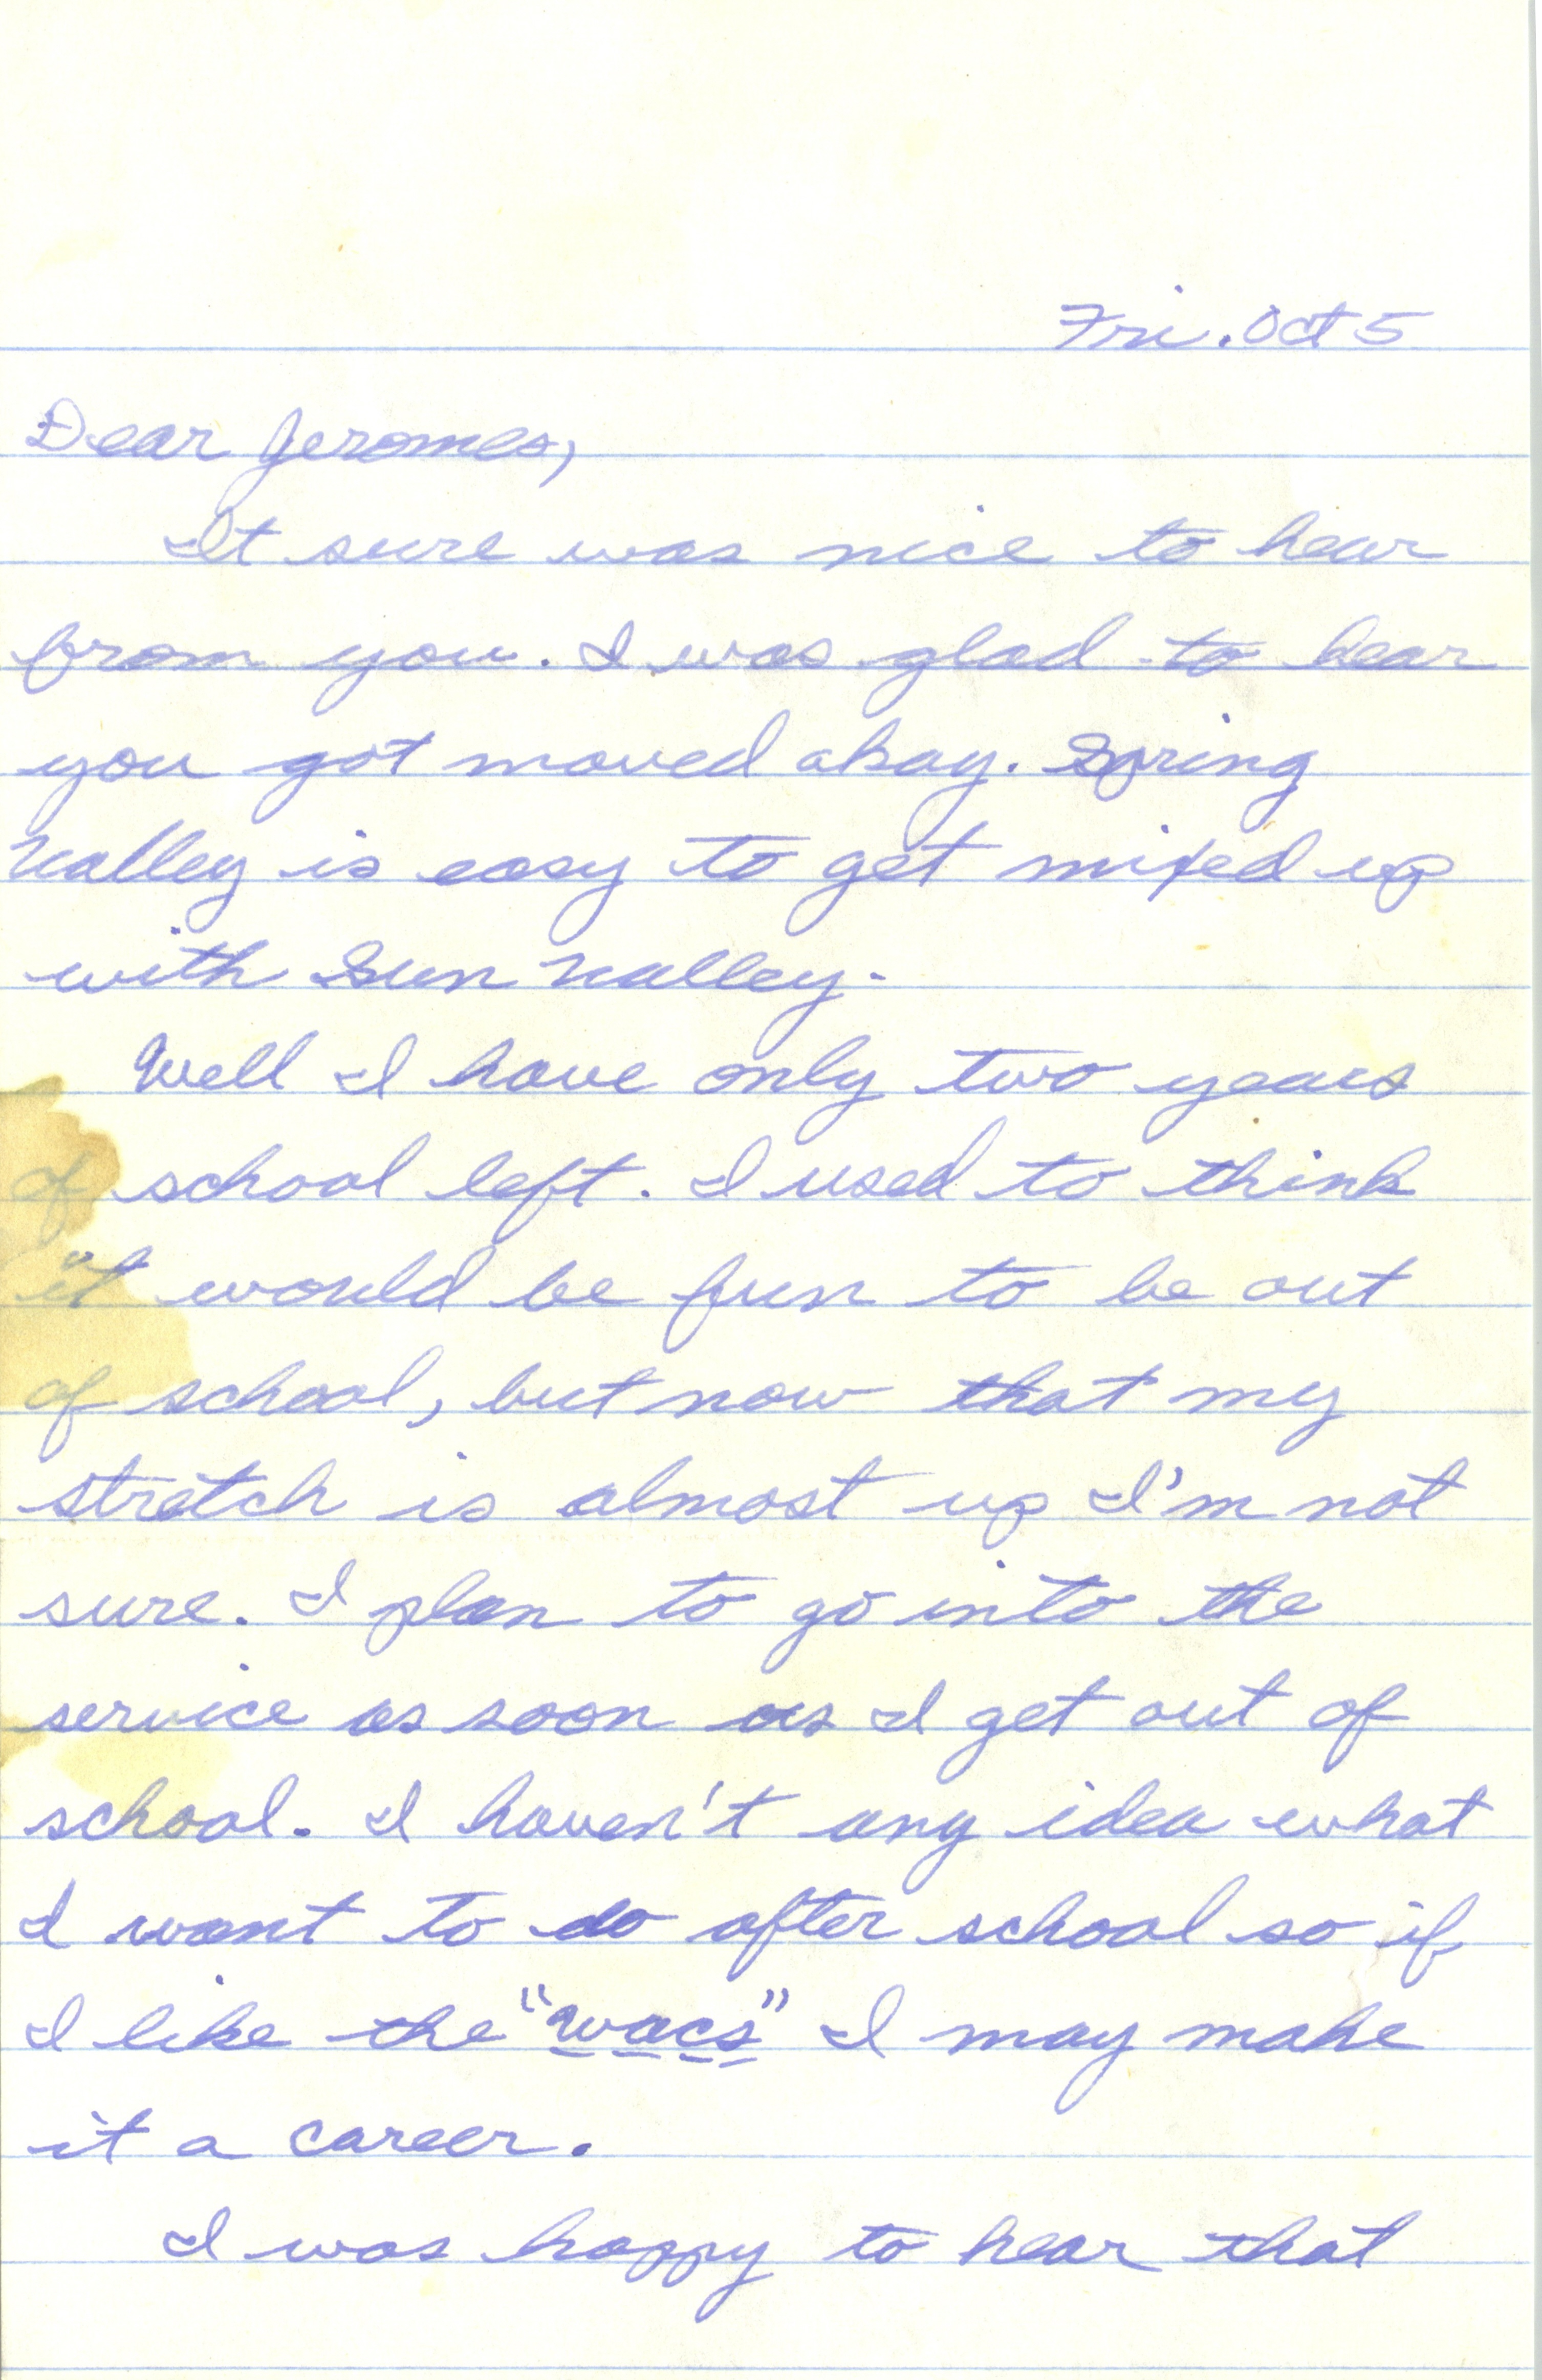 Fri. Oct 5
Dear Jeromes,
It sure was nice to hear
from you. I was glad to hear
you got moved okay. Spring
Valley is easy to get mixed up
with Sun Valley.
Well I have only two years
of school left. I used to think
it would be fun to be out
of school, but now that my
stretch is almost up I'm not
sure. I plan to go into the
service as soon as I get out of
school. I haven't any idea what
I want to do after school so if
I like the "Wacs" I may make
it a career.
I was happy to hear that